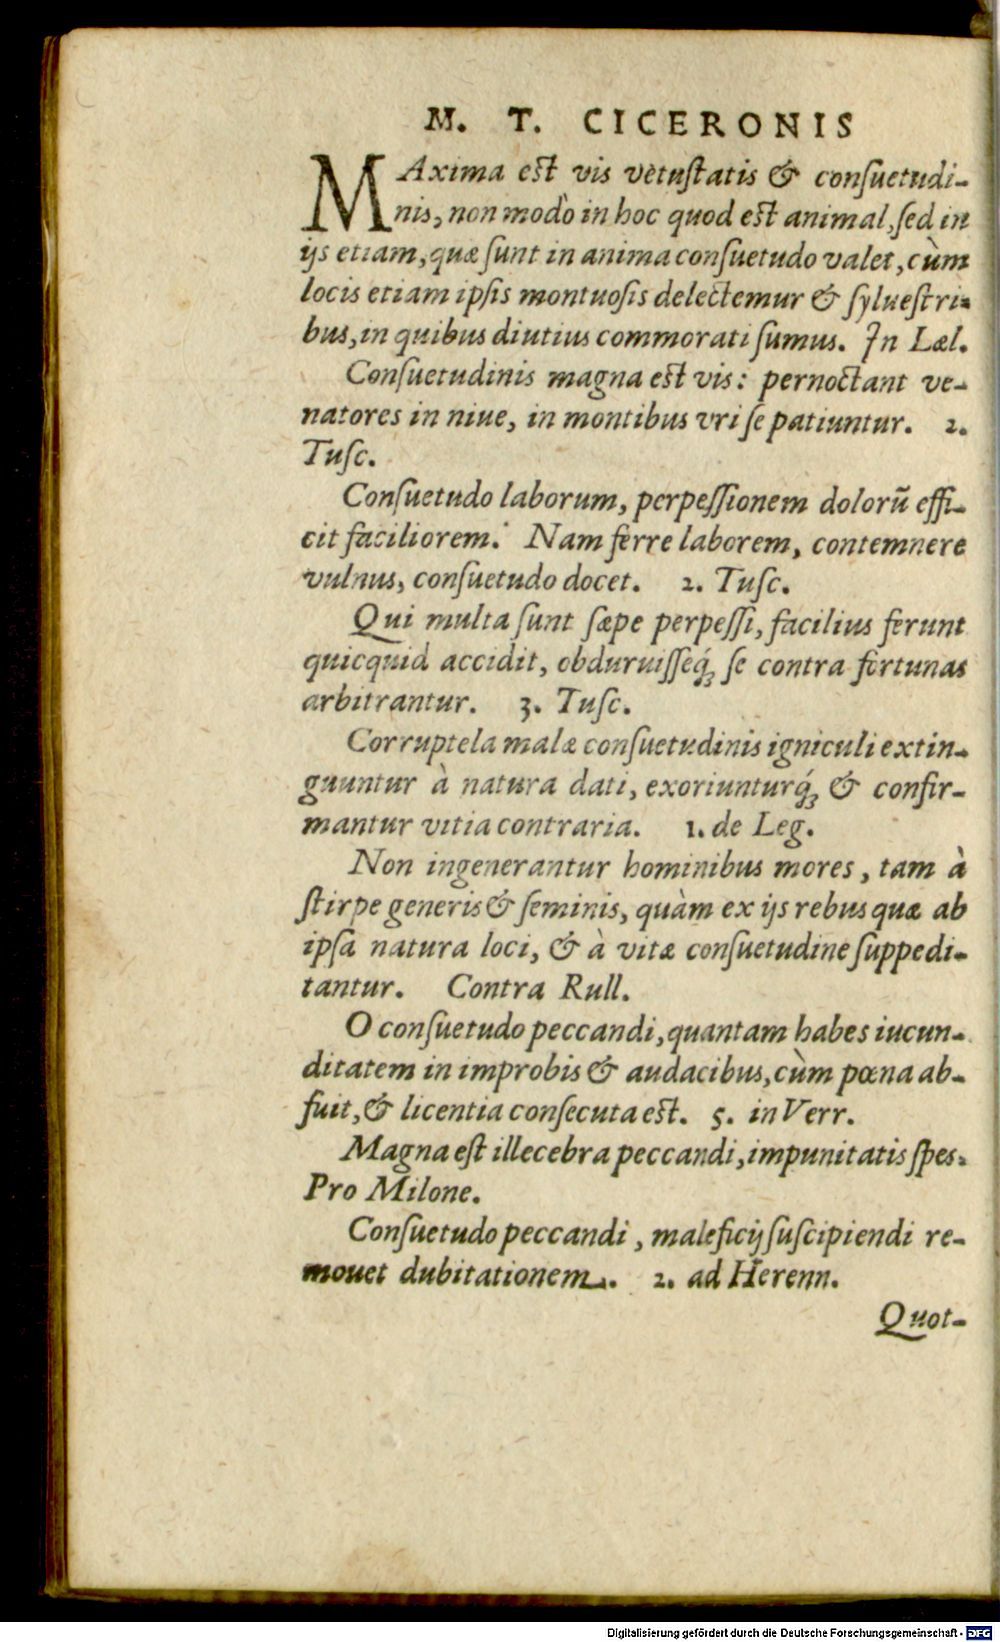 M. T. CICERONIS
MAxima est vis vetustatis & consuetudi-
nis, non modò in hoc quod est animal, sed in
ijs etiam, quæ sunt in anima consuetudo valet, cùm
locis etiam ipsis montuosis delectemur & syluestri-
bus, in quibus diutius commorati sumus. In Læl.
Consuetudinis magna est vis: pernoctant ve-
natores in niue, in montibus vri se patiuntur. 2.
Tusc.
Consuetudo laborum, perpessionem dolorũ effi-
cit faciliorem. Nam ferre laborem, contemnere
vulnus, consuetudo docet. 2. Tusc.
Qui multa sunt sæpe perpessi, facilius ferunt
quicquid accidit, obduruisseq́; se contra fortunas
arbitrantur. 3. Tusc.
Corruptela malæ consuetudinis igniculi extin-
guuntur à natura dati, exoriunturq́; & confir-
mantur vitia contraria. 1. de Leg.
Non ingenerantur hominibus mores, tam à
stirpe generis & seminis, quàm ex ijs rebus quæ ab
ipsa natura loci, & à vitæ consuetudine suppedi-
tantur. Contra Rull.
O consuetudo peccandi, quantam habes iucun-
ditatem in improbis & audacibus, cùm pœna ab-
fuit, & licentia consecuta est. 5. in Verr.
Magna est illecebra peccandi, impunitatis spes.
Pro Milone.
Consuetudo peccandi, maleficij suscipiendi re-
mouet dubitationem. 2. ad Herenn.
Quot-
Digitalisierung gefördert durch die Deutsche Forschungsgemeinschaft - DFG